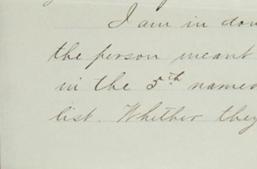 I am in dou
the person meant
in the 5th named
list. Whether they